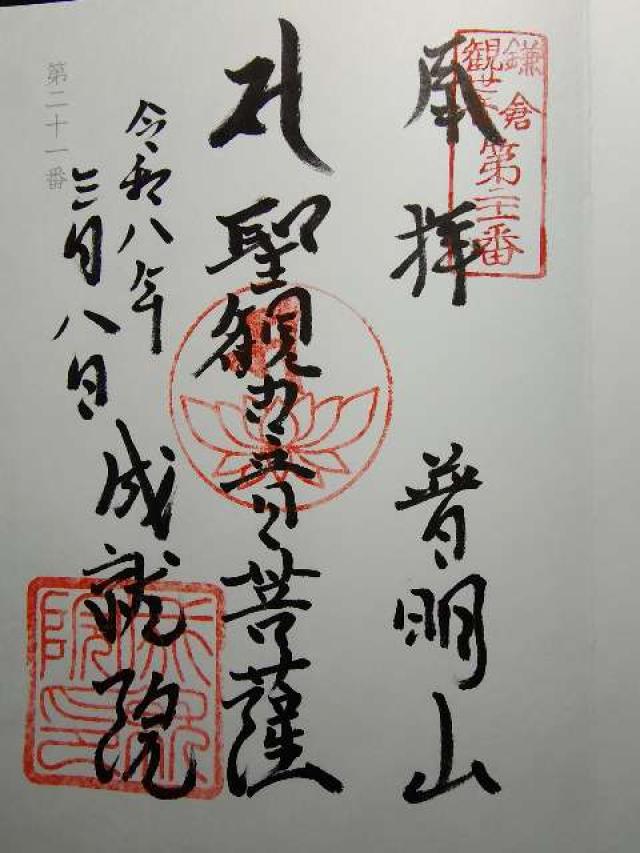 鎌倉
観世音
第二十一番
奉拝 普明山
聖観世音菩薩
成就院
令和八年
三月八日
第二十一番